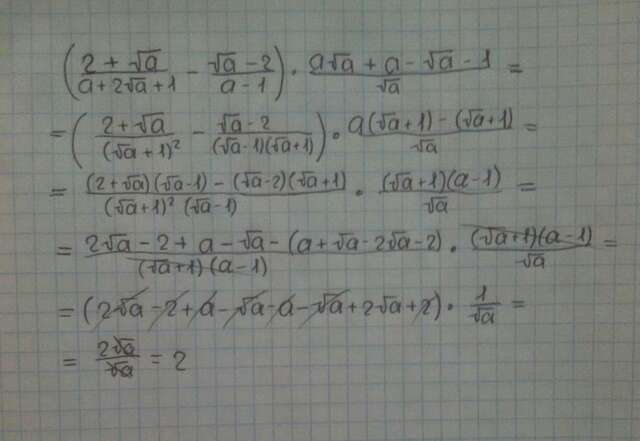 (\frac{2+\sqrt{a}}{a+2\sqrt{a}+1} - \frac{\sqrt{a}-2}{a-1}) \cdot \frac{a\sqrt{a}+a-\sqrt{a}-1}{\sqrt{a}} =
= (\frac{2+\sqrt{a}}{(\sqrt{a}+1)^2} - \frac{\sqrt{a}-2}{(\sqrt{a}-1)(\sqrt{a}+1)}) \cdot \frac{a(\sqrt{a}+1)-(\sqrt{a}+1)}{\sqrt{a}} =
= \frac{(2+\sqrt{a})(\sqrt{a}-1)-(\sqrt{a}-2)(\sqrt{a}+1)}{(\sqrt{a}+1)^2(\sqrt{a}-1)} \cdot \frac{(\sqrt{a}+1)(a-1)}{\sqrt{a}} =
= \frac{2\sqrt{a}-2+a-\sqrt{a}-(a+\sqrt{a}-2\sqrt{a}-2)}{(\sqrt{a}+1)(a-1)} \cdot \frac{(\sqrt{a}+1)(a-1)}{\sqrt{a}} =
= (2\sqrt{a}-2+a-\sqrt{a}-a-\sqrt{a}+2\sqrt{a}+2) \cdot \frac{1}{\sqrt{a}} =
= \frac{2\sqrt{a}}{\sqrt{a}} = 2